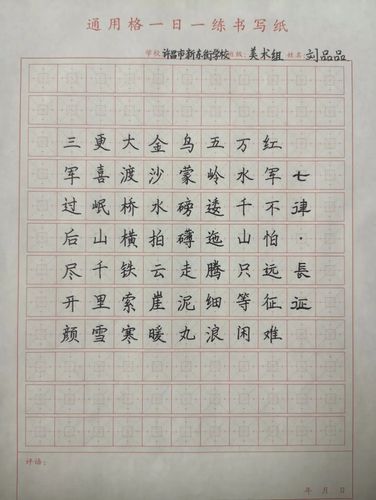 通用格一日一练书写纸
学校:许昌市新东街学校班级:美术组 姓名:刘品品
七律·長证
红军不怕远征难
万水千山只等闲
五岭逶迤腾细浪
乌蒙磅礴走泥丸
金沙水拍云崖暖
大渡桥横铁索寒
更喜岷山千里雪
三军过后尽开颜
评语:
年 月 日